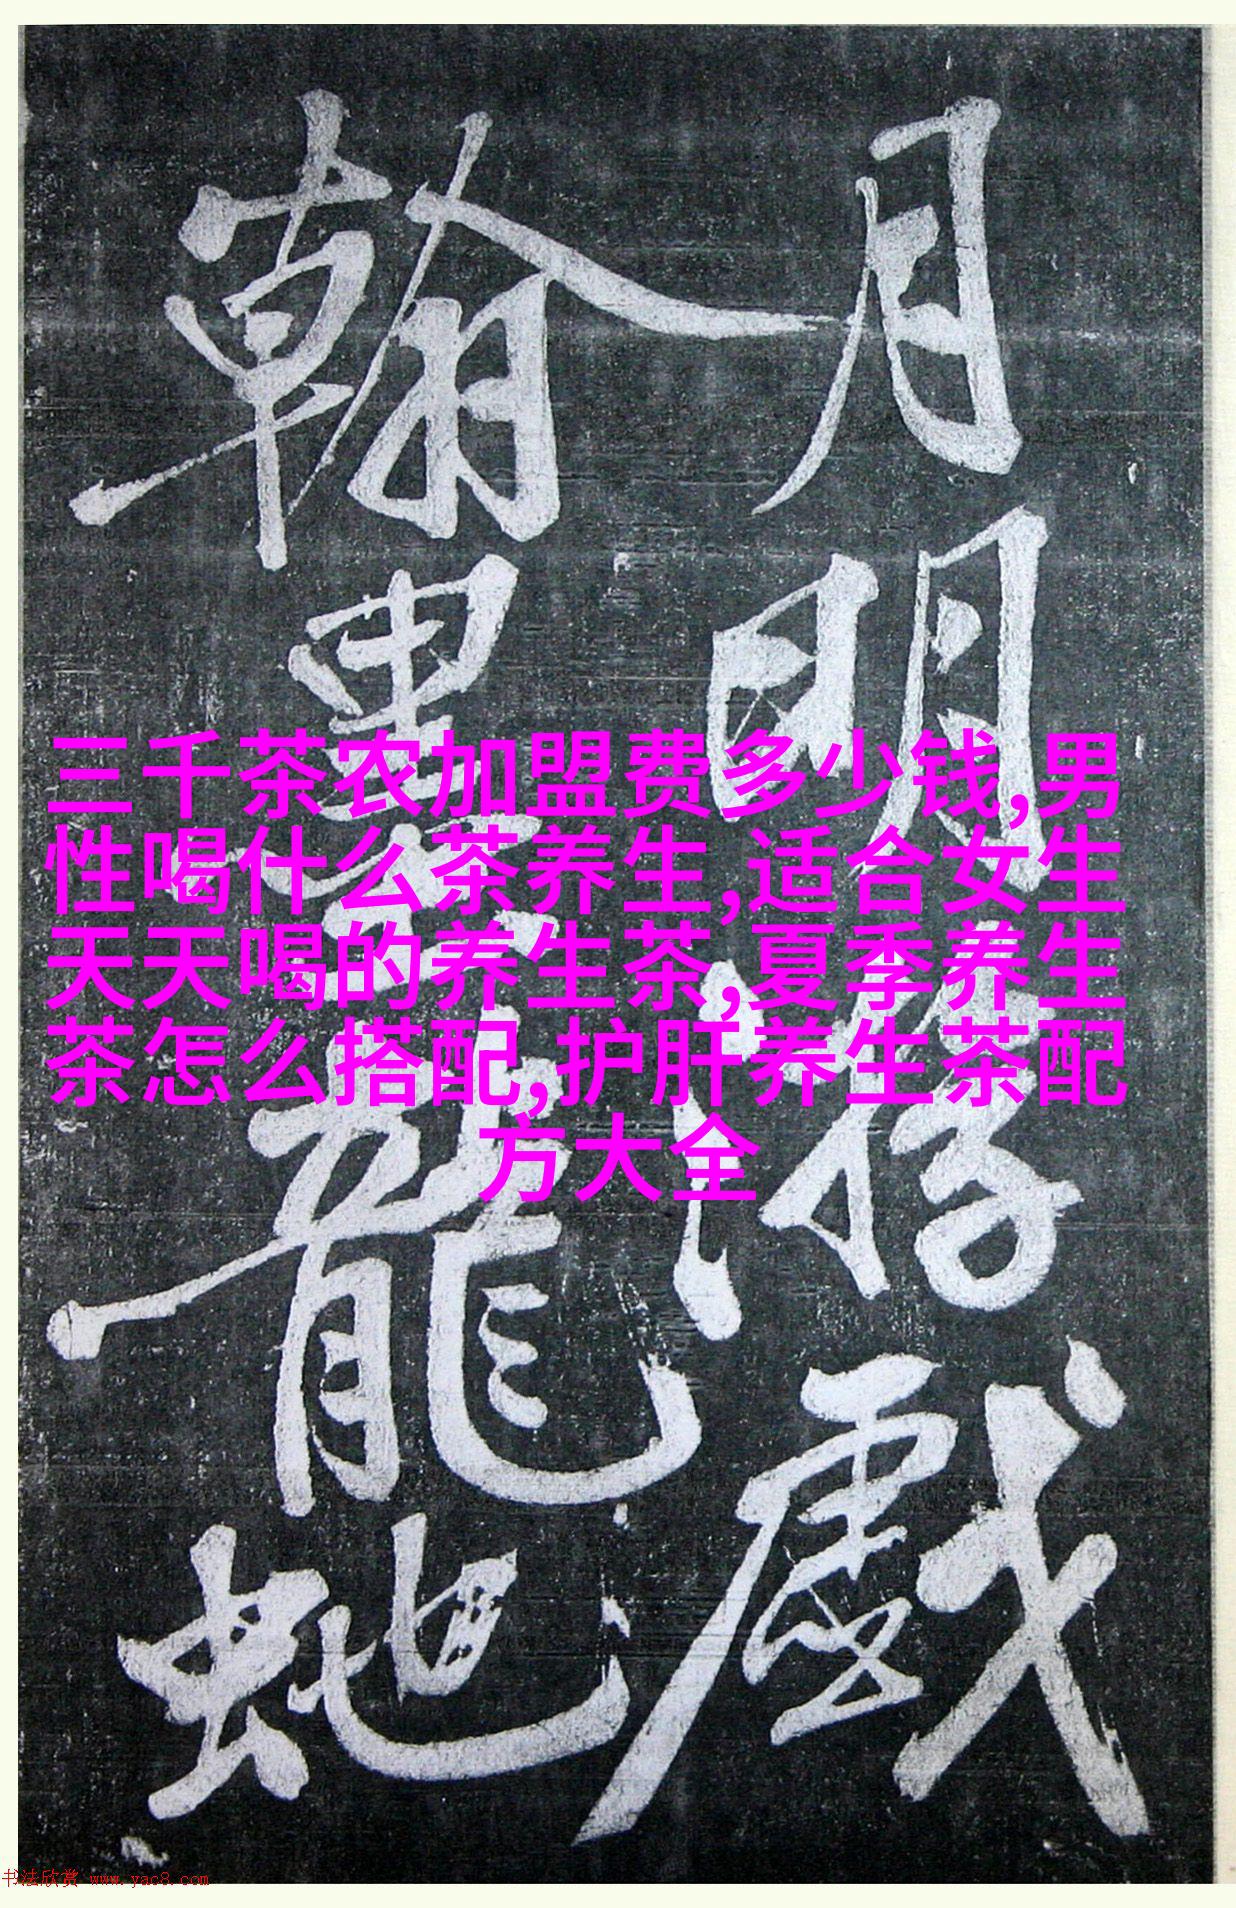 月明游戲
翰墨龍虵
三千茶农加盟费多少钱,男
性喝什么茶养生,适合女生
天天喝的养生茶,夏季养生
茶怎么搭配,护肝养生茶配
方大全
书法欣赏 www.yac8.com